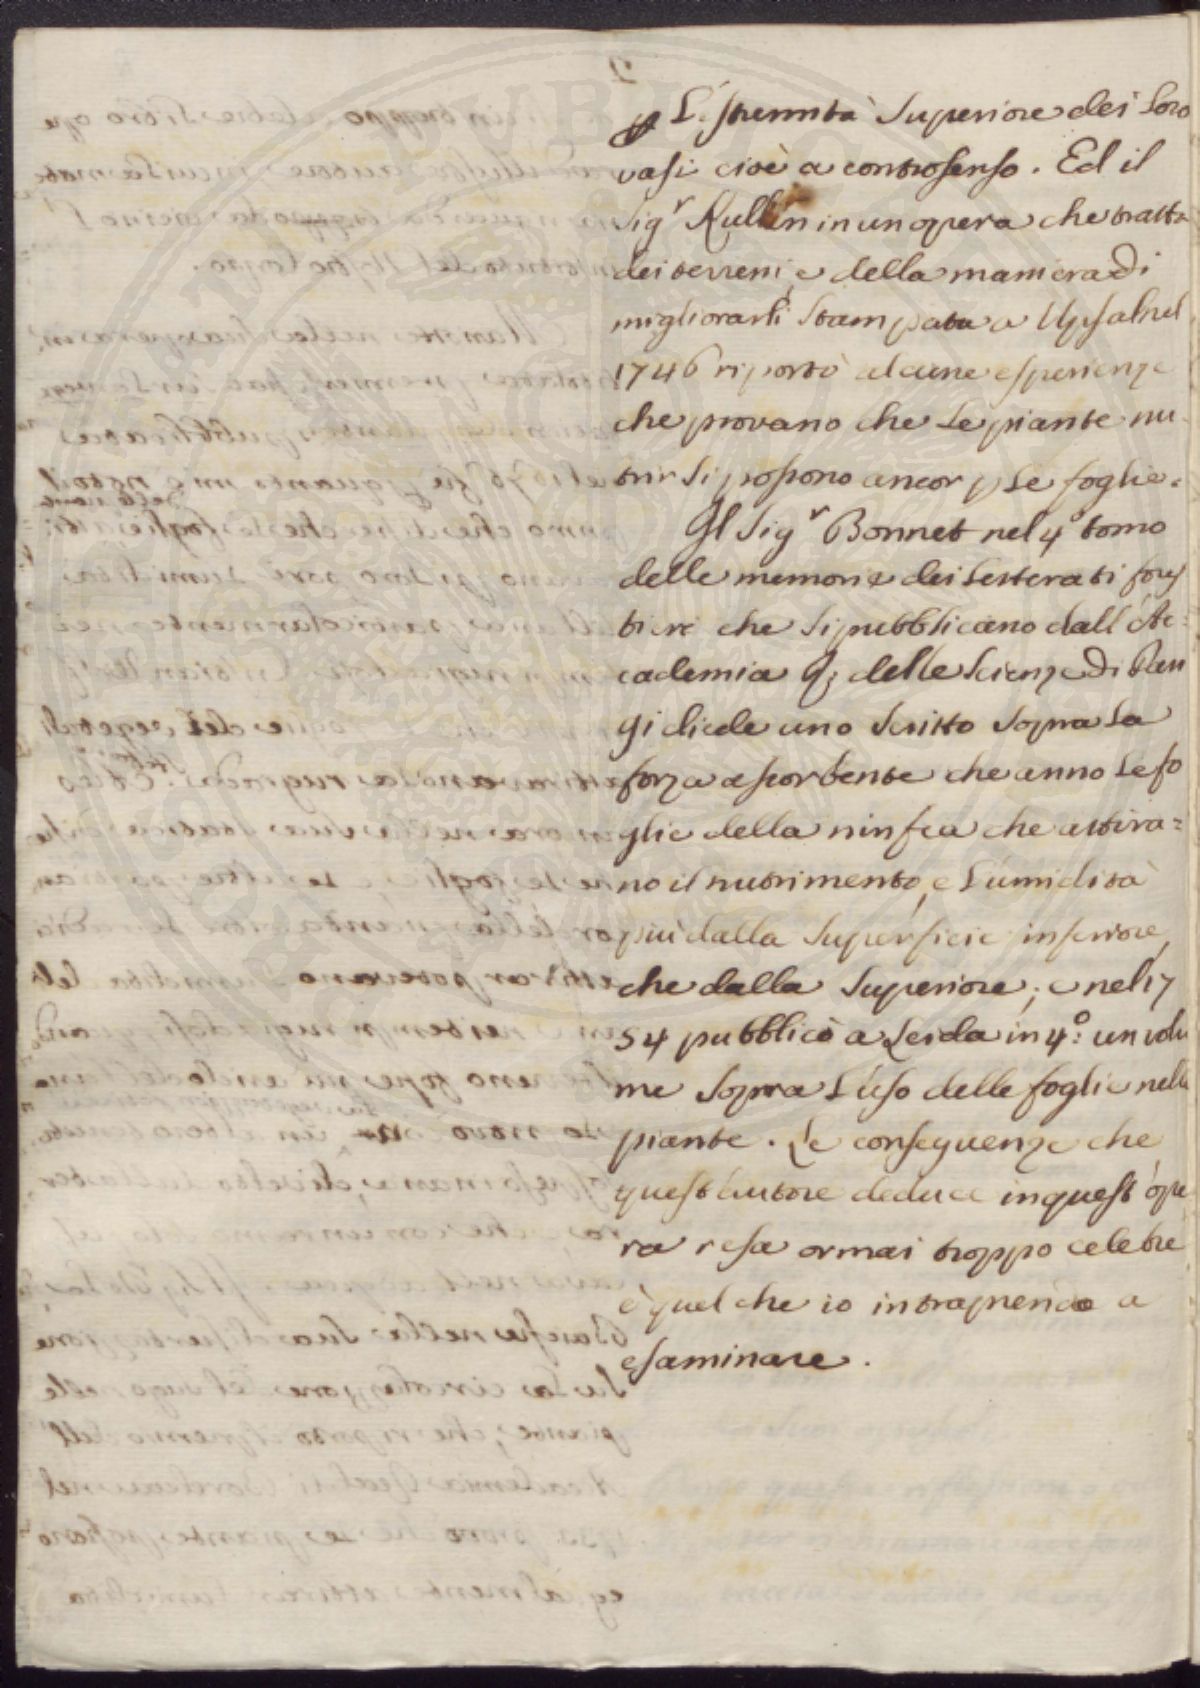 p L'stremità Superiore dei Loro
vasi cioè a controsenso. Ed il
Sig.r Kullin in un opera che tratta
dei terreni, e della maniera di
migliorarli Stampata a Upsal nel
1746 riportò alcune esperienze
che provano che Le piante nu
trir Si possono ancor p Le foglie.
Il Sig.r Bonnet nel 4° tomo
delle memorie dei Letterati fores
tieri che Si pubblicano dall'Ac=
cademia delle Scienze di Pari
gi diede uno Scritto Sopra La
forza assorbente che anno Le fo
glie della ninfea che attira=
no il nutrimento, e L'umidità
più dalla Superficie inferiore,
che dalla Superiore; e nel 17
54 pubblicò a Leida in 4°: un volu
me Sopra L'uso delle foglie nelle
piante. Le conseguenze che
quest'autore deduce in quest'ope
ra resa ormai troppo celebre
è quel che io intraprendo a
esaminare.